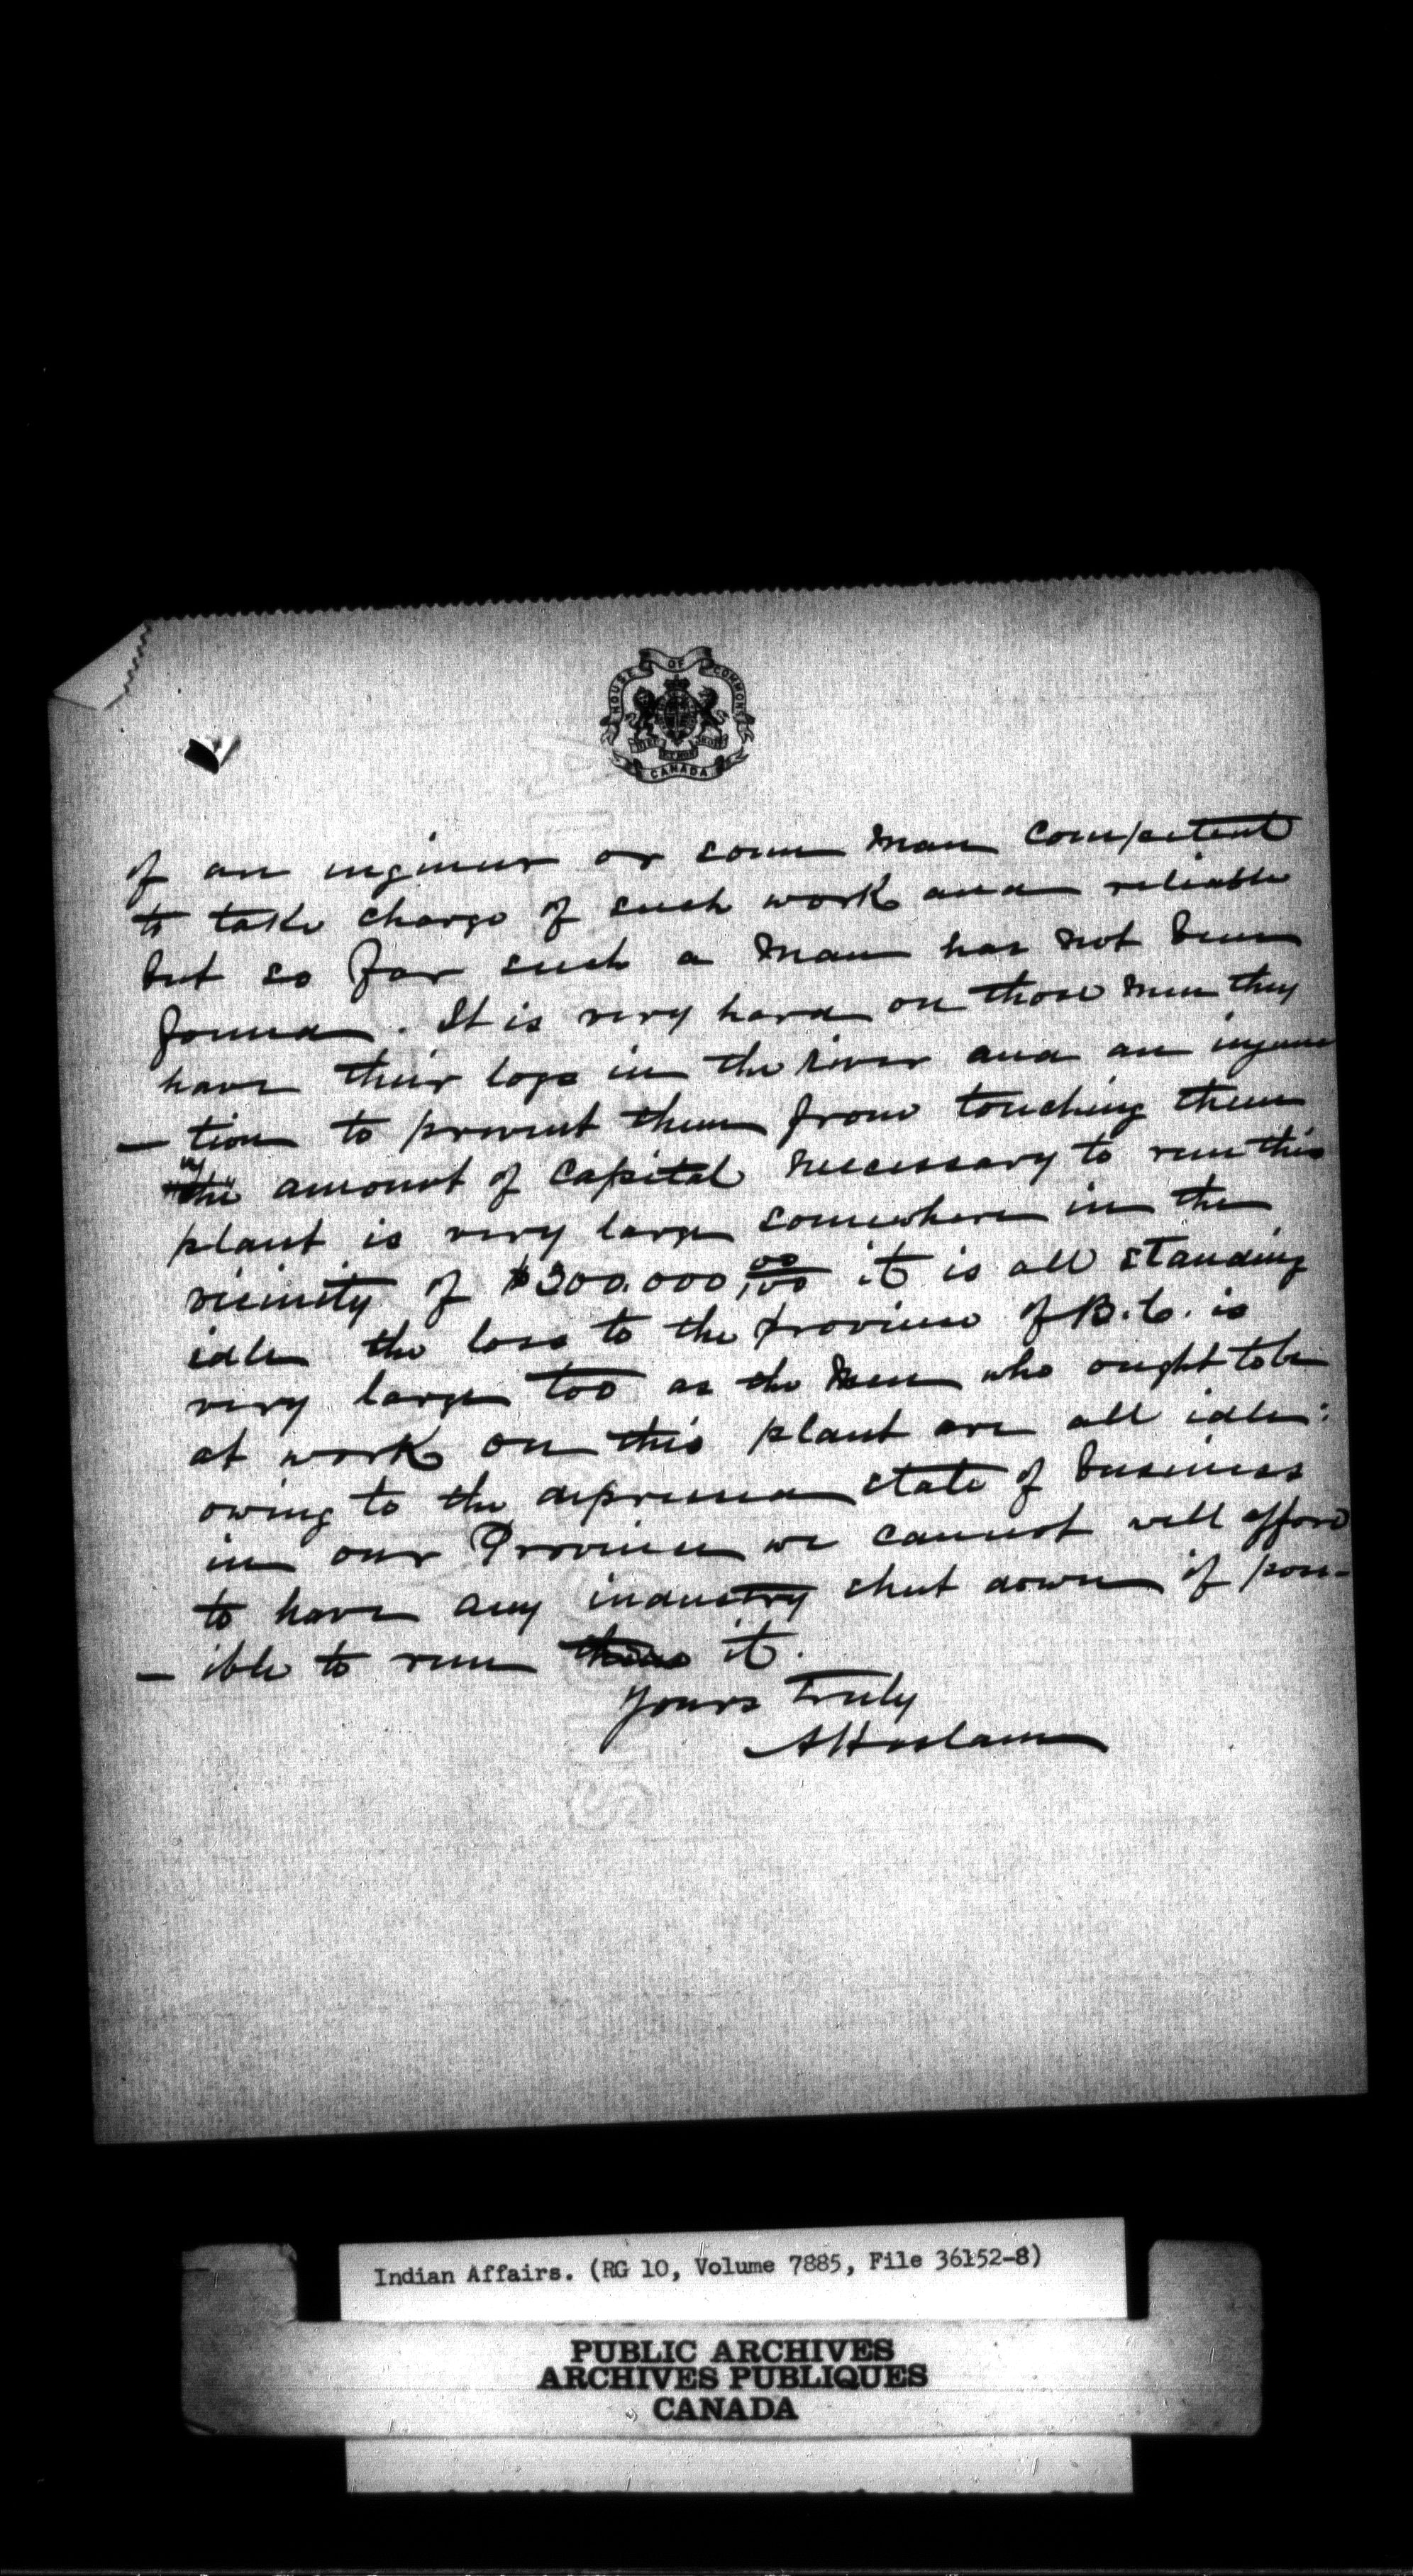 HOUSE OF COMMONS
CANADA
of an ingineer or some man competent
to take charge of such work and reliable
but so far such a man has not been
found. It is very hard on those men they
have their logs in the river and an injunc
- tion to prevent them from touching them
the amount of capital necessary to run this
plant is very large somewhere in the
vicinity of $300.000 00/100 it is all standing
idle the loss to the province of B.C. is
very large too as the men who ought to be
at work on this plant are all idle:
owing to the depressed state of business
in our Province we cannot well afford
to have any industry shut down if poss-
- ible to run it.
Yours Truly
A Haslam
Indian Affairs. (RG 10, Volume 7885, File 36152-8)
PUBLIC ARCHIVES
ARCHIVES PUBLIQUES
CANADA